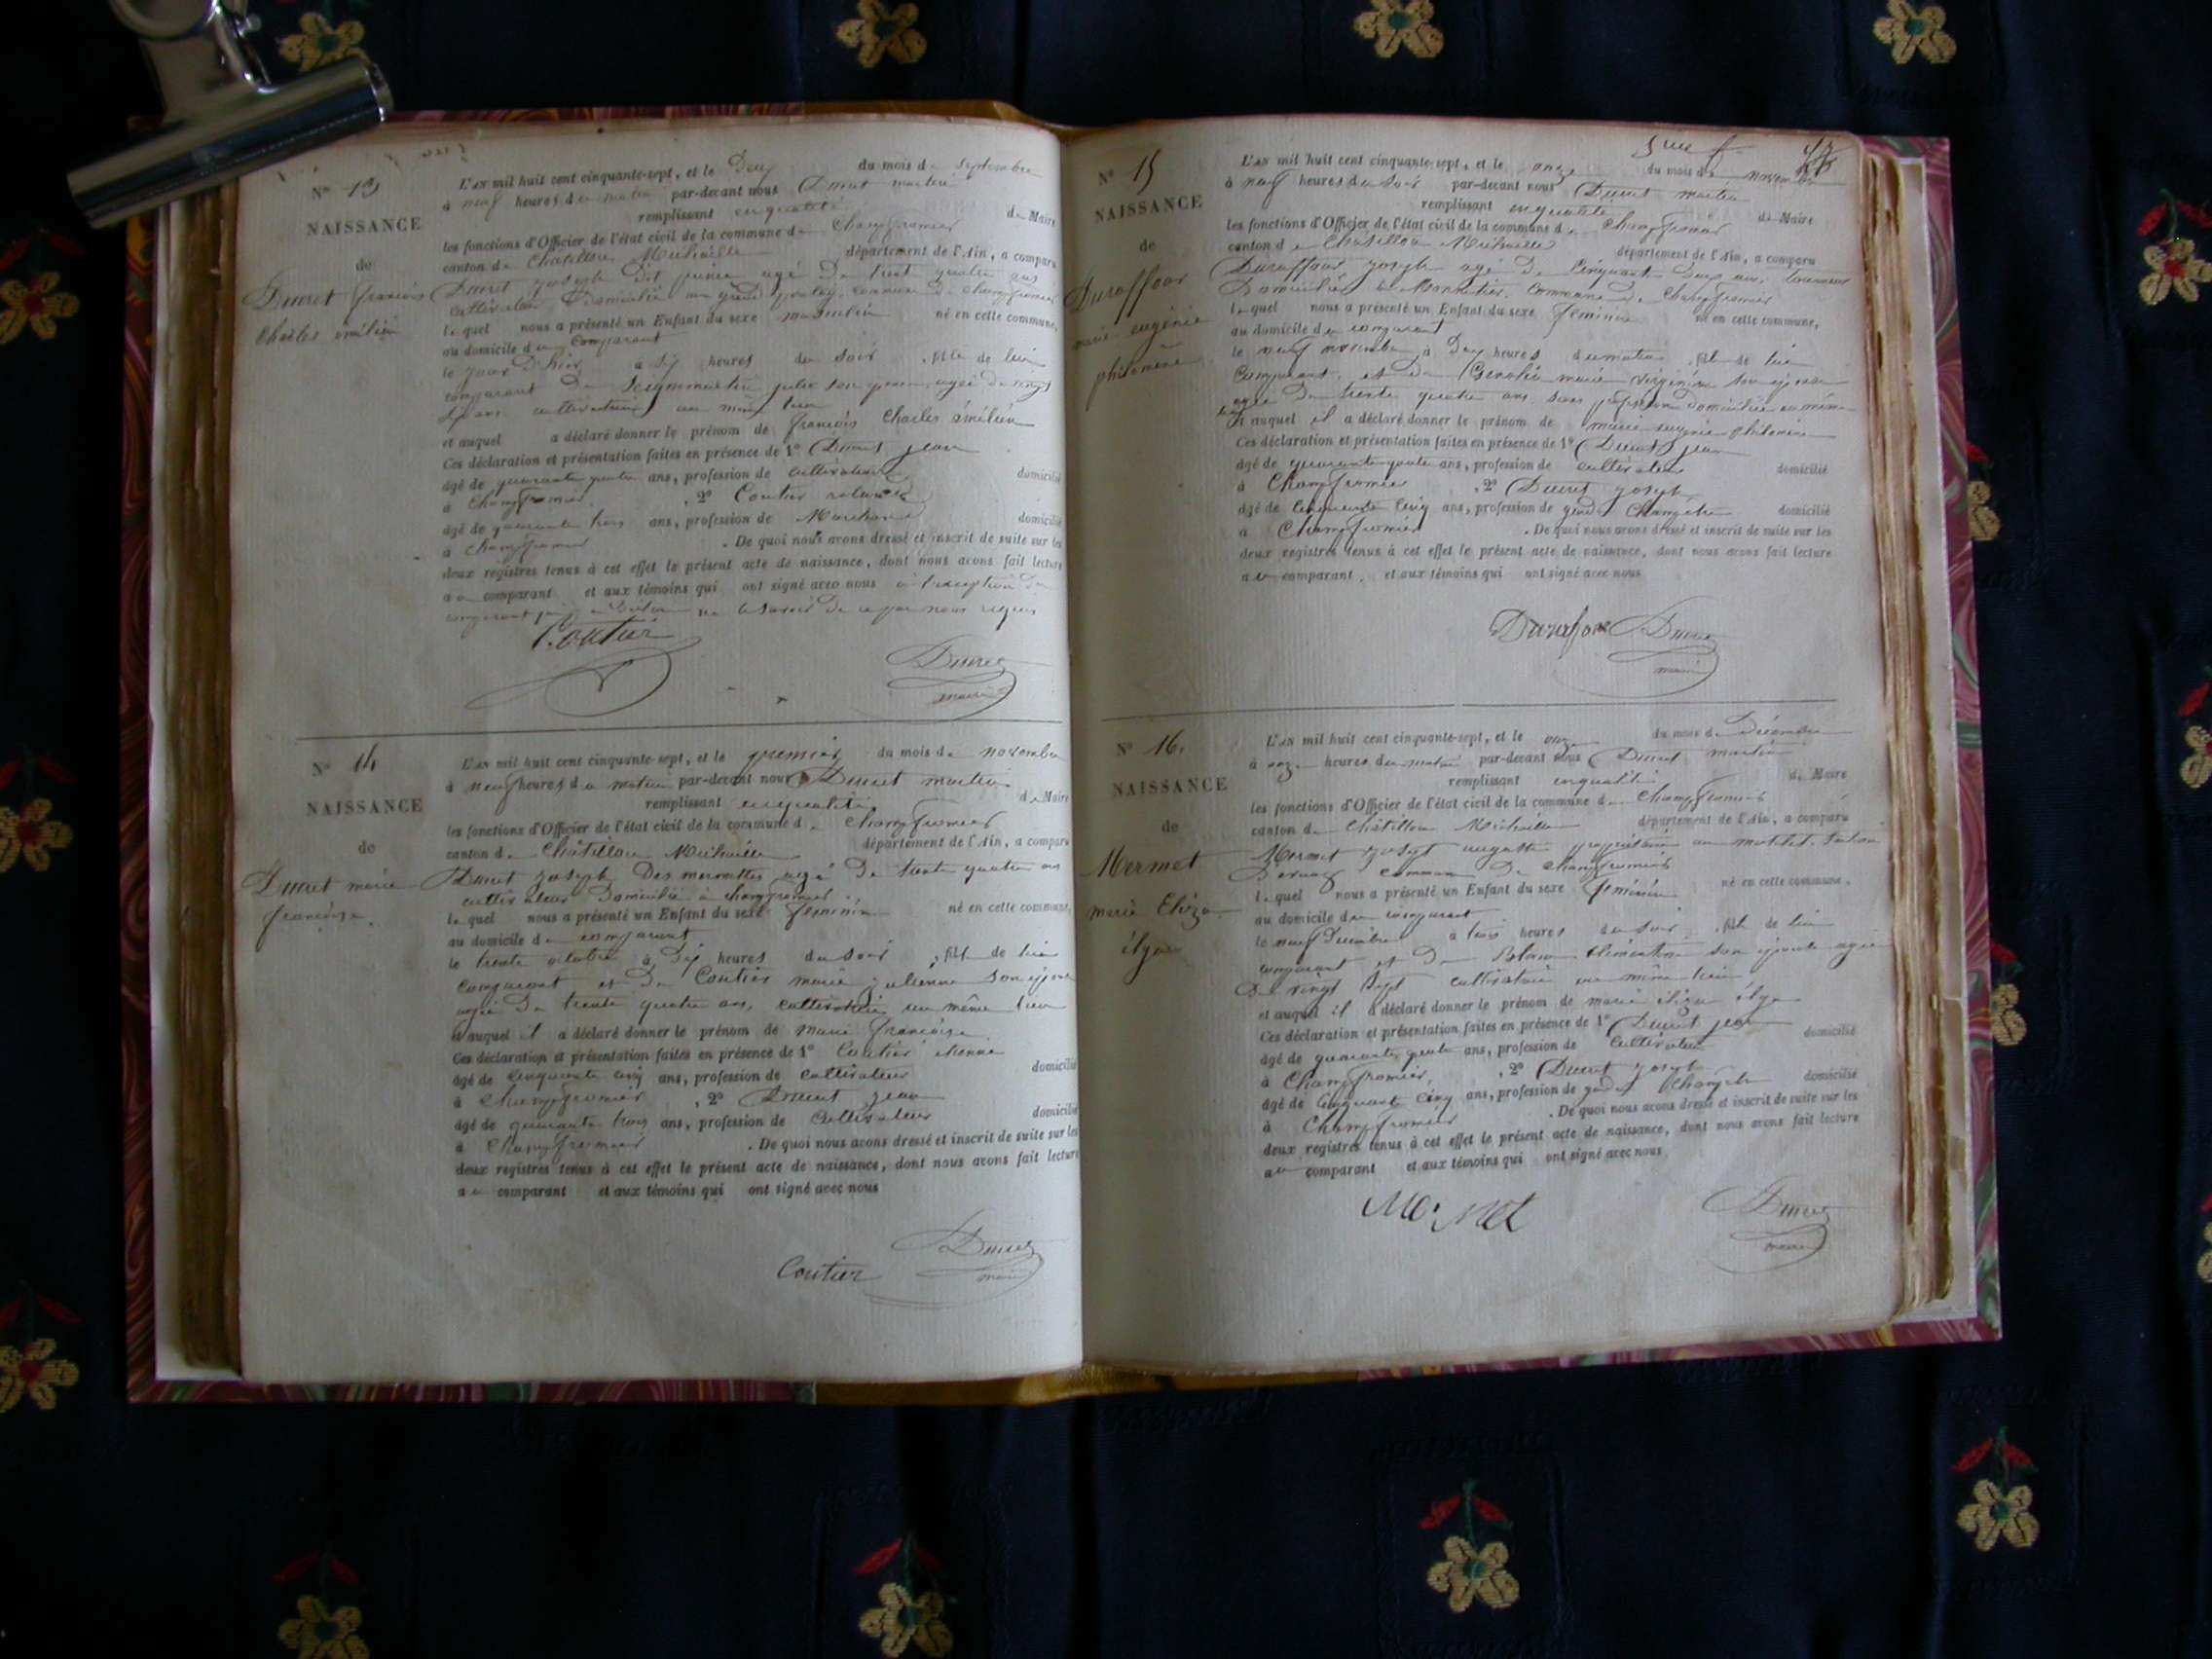 N° 13
NAISSANCE
de
Ducret françois
Charles émilien
L'an mil huit cent cinquante-sept, et le Deux du mois de Septembre
à neuf heures du matin par-devant nous Ducret martin
remplissant en qualité de Maire
les fonctions d'Officier de l'état civil de la commune de Champfromier
canton de Chatillon Michaille département de l'Ain, a comparu
Ducret joseph dit agé de trent quatre ans
cultivateur Domicilié au grand commune de Champfromier
lequel nous a présenté un Enfant du sexe masculin né en cette commune,
au domicile du Comparant
le jour D'hier à heures du soir, fils de lui
comparant De julie son agée de vingt
ans cultivatrice au même lieu
et auquel a déclaré donner le prénom de françois Charles émilien
Ces déclaration et présentation faites en présence de 1° Ducret jean
âgé de quarante quatre ans, profession de cultivateur domicilié
à Champfromier, 2° Coutier
âgé de quarante trois ans, profession de Marchand domicilié
à Champfromier. De quoi nous avons dressé et inscrit de suite sur les
deux registres tenus à cet effet le présent acte de naissance, dont nous avons fait lecture
au comparant et aux témoins qui ont signé avec nous à l'exception du
comparant ne le savoir de ce par nous requis
Coutier
Ducret
maire
N° 14
NAISSANCE
de
Ducret marie
françoise.
L'an mil huit cent cinquante-sept, et le premier du mois de novembre
à neuf heures du matin par-devant nous Ducret martin
remplissant en qualité de Maire
les fonctions d'Officier de l'état civil de la commune de Champfromier
canton de Châtillon Michaille département de l'Ain, a comparu
Ducret joseph Des agé De trente quatre ans
cultivateur Domicilié à Champfromier
lequel nous a présenté un Enfant du sexe féminin né en cette commune,
au domicile du comparant
le trente octobre à heures du soir, fille de lui
comparant et De Coutier marie julienne son épouse
agée De trente quatre ans, cultivatrice au même lieu
et auquel il a déclaré donner le prénom de marie françoise
Ces déclaration et présentation faites en présence de 1° Coutier étienne
âgé de cinquante cinq ans, profession de cultivateur domicilié
à Champfromier, 2° Ducret jean
âgé de quarante trois ans, profession de Cultivateur domicilié
à Champfromier. De quoi nous avons dressé et inscrit de suite sur les
deux registres tenus à cet effet le présent acte de naissance, dont nous avons fait lecture
au comparant et aux témoins qui ont signé avec nous
Coutier
Ducret
maire
N° 15
NAISSANCE
de
Duraffour
marie eugénie
philomène
L'an mil huit cent cinquante-sept, et le onze du mois de novembre
à neuf heures du soir par-devant nous Ducret martin
remplissant en qualité de Maire
les fonctions d'Officier de l'état civil de la commune de Champfromier
canton de Chatillon Michaille département de l'Ain, a comparu
Duraffour joseph agé De Cinquante Deux ans,
Domicilié commune De Champfromier
lequel nous a présenté un Enfant du sexe féminin né en cette commune,
au domicile du comparant
le neuf novembre à Deux heures du matin, fille de lui
Comparant, et De marie virginie son épouse
agée De trente quatre ans sans profession Domiciliée au même
lieu Et auquel il a déclaré donner le prénom de marie eugénie philomène
Ces déclaration et présentation faites en présence de 1° Ducret jean
âgé de quarante quatre ans, profession de cultivateur domicilié
à Champfromier, 2° Ducret joseph
âgé de Cinquante Cinq ans, profession de garde Champêtre domicilié
à Champfromier. De quoi nous avons dressé et inscrit de suite sur les
deux registres tenus à cet effet le présent acte de naissance, dont nous avons fait lecture
au comparant, et aux témoins qui ont signé avec nous
Duraffour
Ducret
maire
N° 16.
NAISSANCE
de
Mermet
marie Eliza
L'an mil huit cent cinquante-sept, et le onze du mois de Décembre
à onze heures du matin par-devant nous Ducret martin
remplissant en qualité de Maire
les fonctions d'Officier de l'état civil de la commune de Champfromier
canton de Châtillon Michaille département de l'Ain, a comparu
Mermet joseph auguste propriétaire au
commune De Champfromier
lequel nous a présenté un Enfant du sexe féminin né en cette commune,
au domicile du comparant
le neuf Décembre à trois heures du soir, fille de lui
comparant et De clémentine son épouse agée
De vingt Sept cultivatrice au même lieu
et auquel il a déclaré donner le prénom de marie éliza
Ces déclaration et présentation faites en présence de 1° Ducret jean
âgé de quarante quatre ans, profession de Cultivateur domicilié
à Champfromier, 2° Ducret joseph
âgé de Cinquante Cinq ans, profession de garde Champêtre domicilié
à Champfromier. De quoi nous avons dressé et inscrit de suite sur les
deux registres tenus à cet effet le présent acte de naissance, dont nous avons fait lecture
au comparant et aux témoins qui ont signé avec nous
Mermet
Ducret
maire